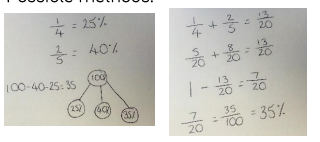 Possible methods:
1/4 = 25%
2/5 = 40%
100-40-25=35
100
25% 40% 35%
1/4 + 2/5 = 13/20
5/20 + 8/20 = 13/20
1 - 13/20 = 7/20
7/20 = 35/100 = 35%